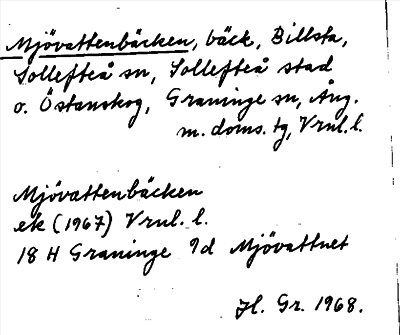 Mjövattenbäcken, bäck, Billsta,
Sollefteå sn, Sollefteå stad
o. Östanskog, Graninge sn, Ång.
m. doms. tg, Vrnl. l.
Mjövattenbäcken
ek (1967) Vrnl. l.
18 H Graninge 9d Mjövattnet
Hl. Gr. 1968.